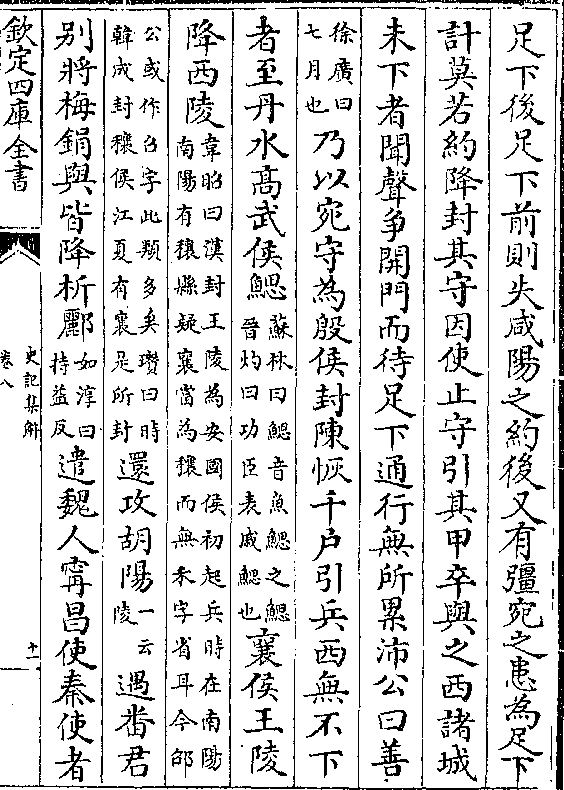 足下後足下前則失咸陽之約後又有彊宛之患為足下
計莫若約降封其守因使止守引其甲卒與之西諸城
未下者聞聲争開門而待足下通行無所累沛公曰善
徐廣曰
七月也
乃以宛守為殷侯封陳恢千户引兵西無不下
者至丹水髙武侯鰓
蘇林曰鰓音魚鰓之鰓
晉灼曰功臣表戚鰓也
襄侯王陵
降西陵
韋昭曰漢封王陵為安國侯初起兵時在南陽
南陽有穰縣疑襄當為穰而無禾字省耳今邵
公或作召字此類多矣瓚曰時
韓成封穰侯江夏有襄是所封
還攻胡陽
一云
陵
遇番君
别將梅鋗與皆降析酈
如淳曰
持益反
遣魏人甯昌使秦使者
欽定四庫全書
史記集解
卷八
十一